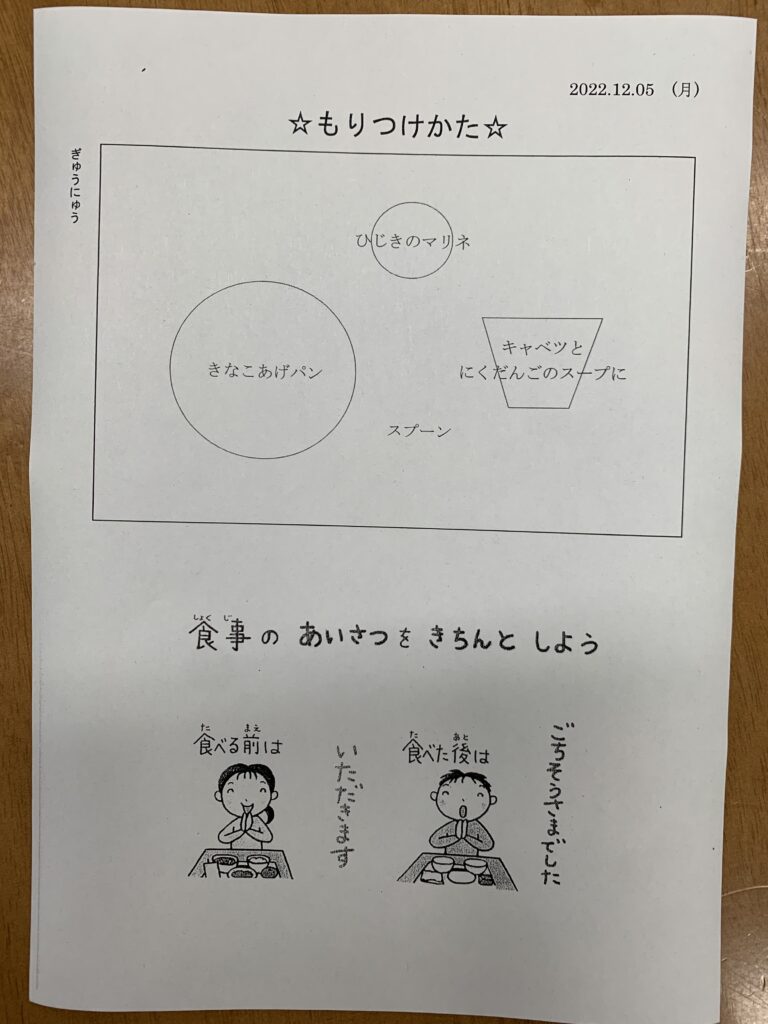 2022.12.05 (月)
☆もりつけかた☆
ぎゅうにゅう
ひじきのマリネ
きなこあげパン
キャベツと
にくだんごのスープに
スプーン
しょく じ
食事の あいさつを きちんと しよう
た まえ
食べる前は
いただきます
た あと
食べた後は
ごちそうさまでした